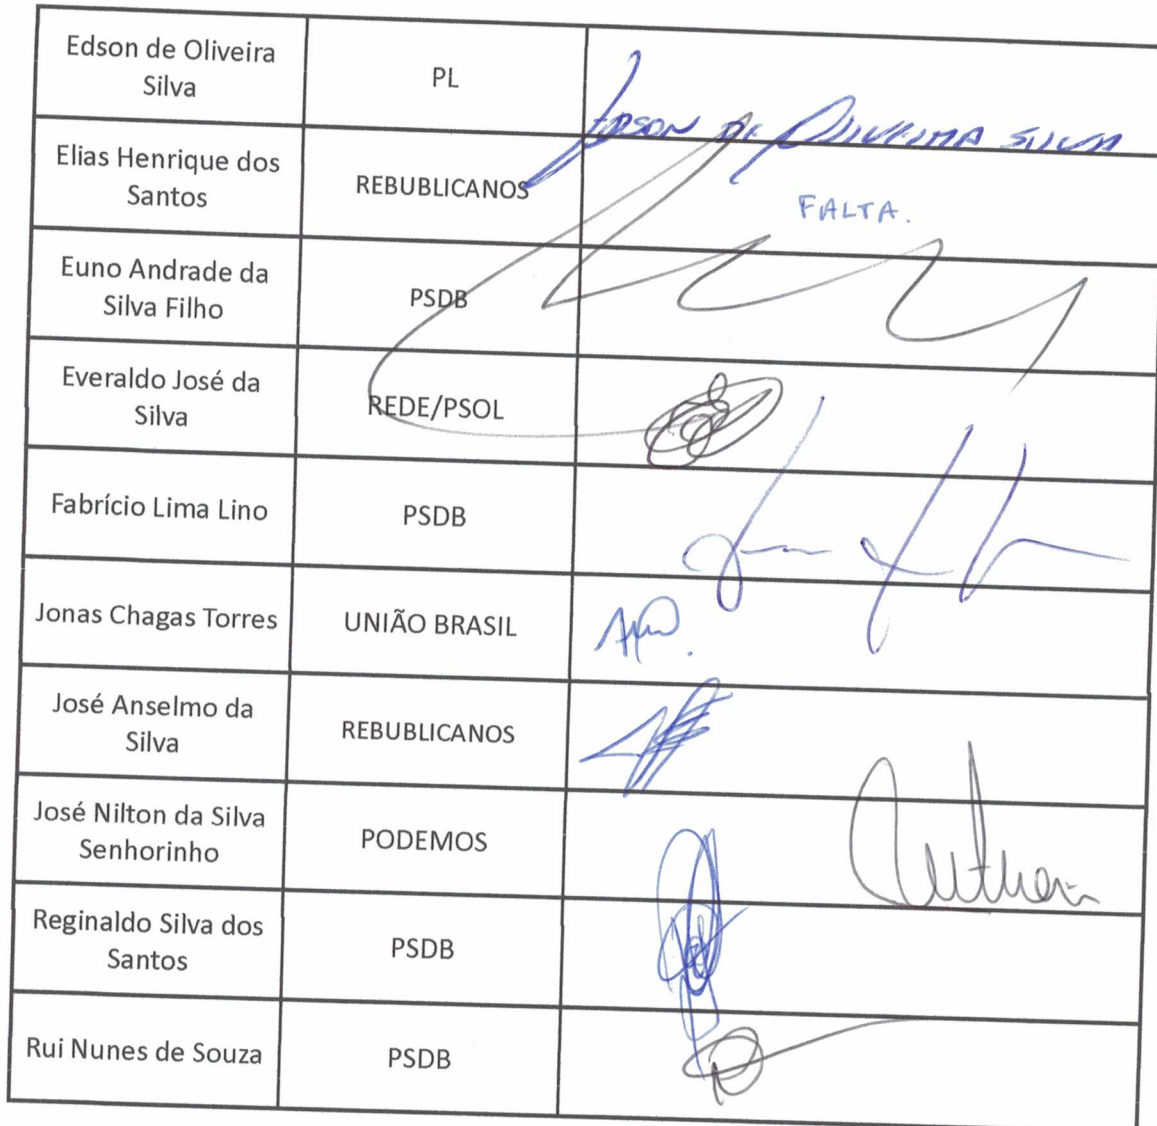 Edson de Oliveira
Silva
PL
EDSON DE OLIVEIRA SILVA
Elias Henrique dos
Santos
REBUBLICANOS
FALTA.
Euno Andrade da
Silva Filho
PSDB
Everaldo José da
Silva
REDE/PSOL
Fabrício Lima Lino
PSDB
Jonas Chagas Torres
UNIÃO BRASIL
José Anselmo da
Silva
REBUBLICANOS
José Nilton da Silva
Senhorinho
PODEMOS
Reginaldo Silva dos
Santos
PSDB
Rui Nunes de Souza
PSDB